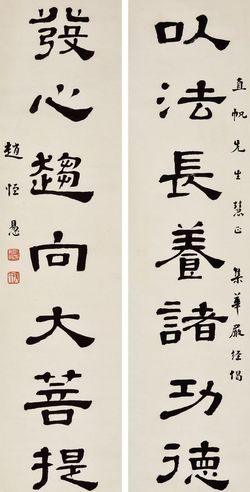 以法長養諸功德
直帆先生慧正
集華嚴經偈
發心趨向大菩提
趙恒惖